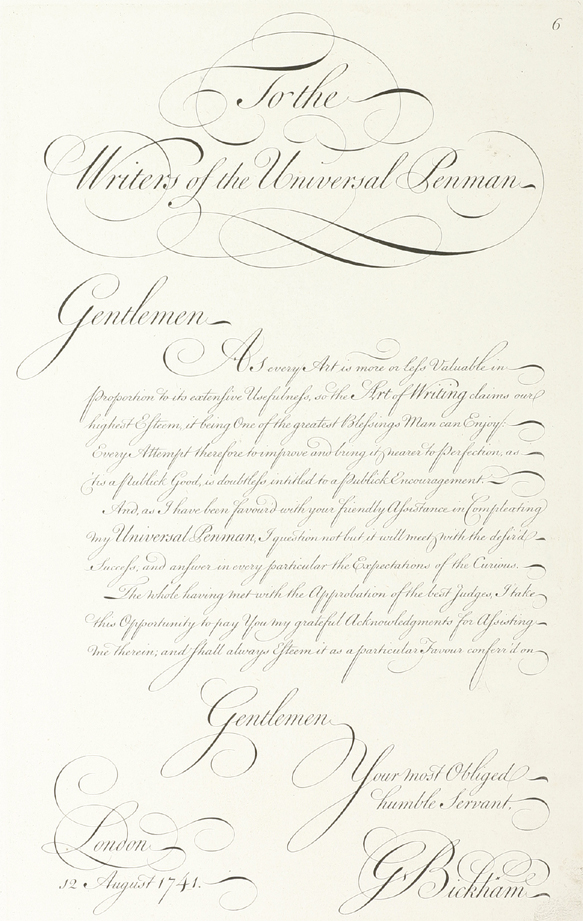 6
To the
Writers of the Universal Penman
Gentlemen
As every Art is more or less Valuable in
proportion to its extensive Usefulness, so the Art of Writing claims our
highest Esteem, it being One of the greatest Blessings Man can Enjoy:
Every Attempt therefore to improve and bring it nearer to Perfection, as
'tis a Publick Good, is doubtless intitled to a Publick Encouragement.
And, as I have been favour'd with your friendly Assistance in Compleating
my Universal Penman, I question not but it will meet with the desir'd
Success, and answer in every particular the Expectations of the Curious.
The whole having met with the Approbation of the best Judges, I take
this Opportunity to pay You my grateful Acknowledgments for Assisting
me therein; and shall always Esteem it as a particular Favour conferr'd on
Gentlemen
Your most Obliged
humble Servant.
London
12 August 1741.
G Bickham